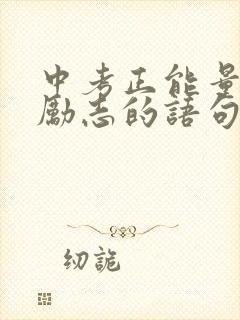 中考正能量
励志的語句
纫詭